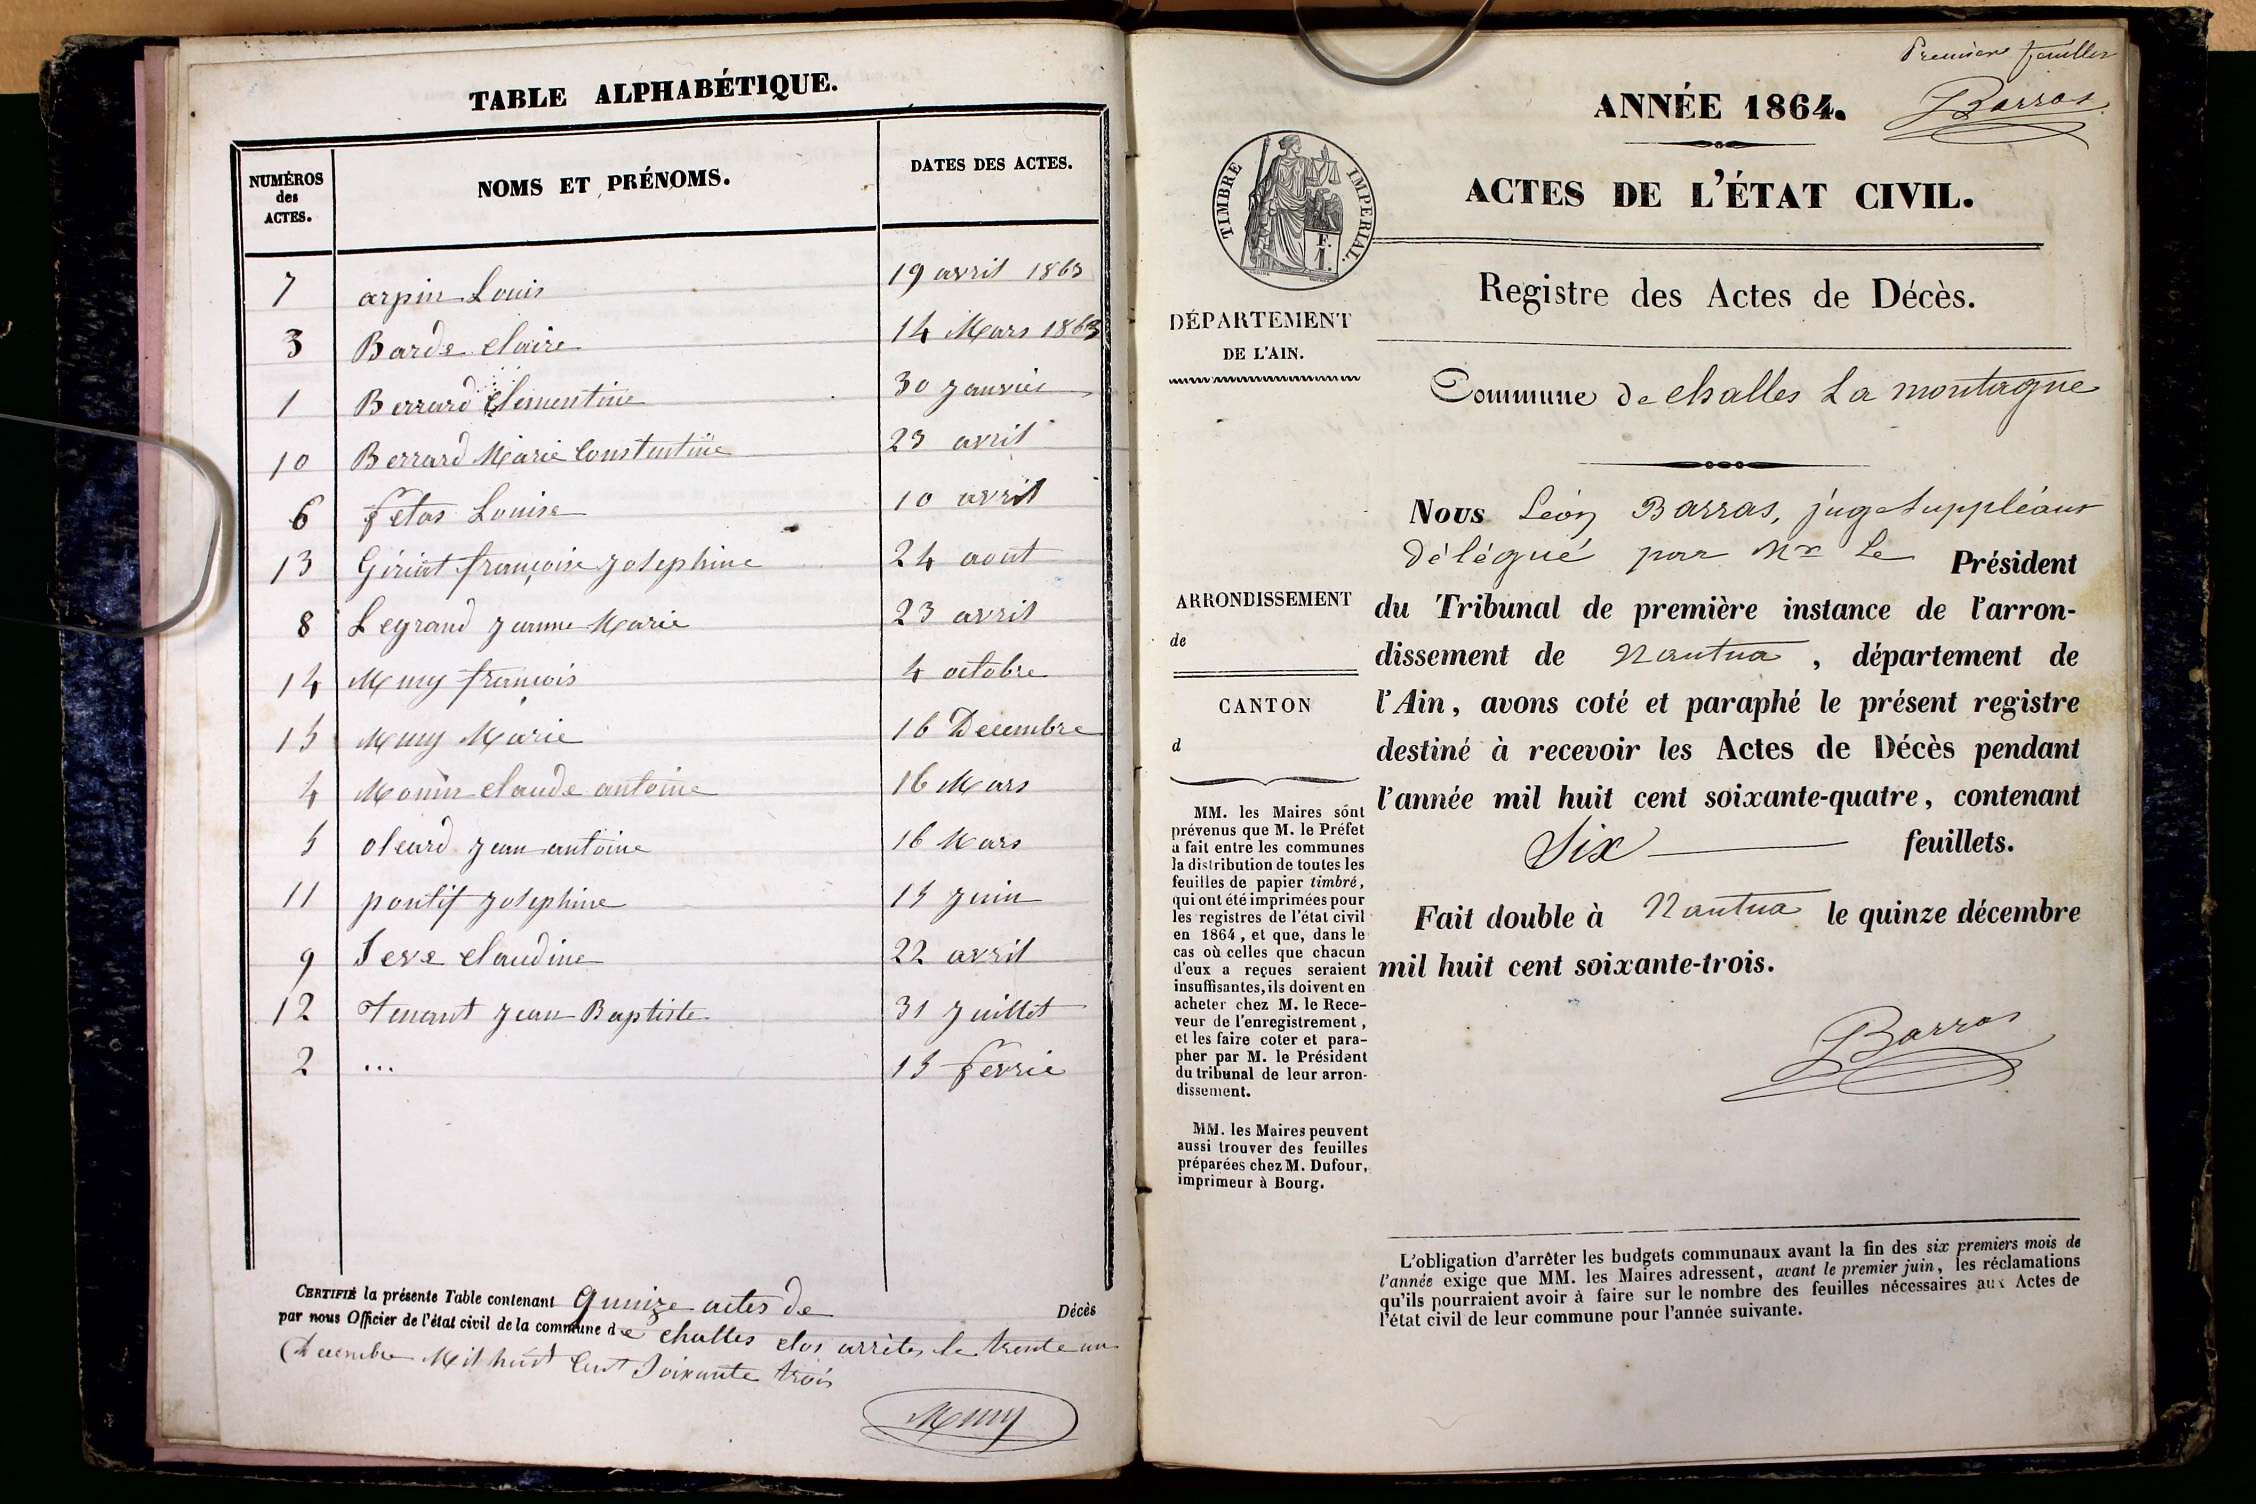 TABLE ALPHABÉTIQUE.
NUMÉROS
des
ACTES.
NOMS ET PRÉNOMS.
DATES DES ACTES.
7 arpin Louis 19 avril 1863
3 Barde Claire 14 Mars 1863
1 Berrard Clementine 30 Janvier
10 Berrard Marie Constentine 23 avril
6 fetas Louise 10 avril
13 Giriat françoise Josephine 24 aout
8 Legrand Jeanne Marie 23 avril
14 Muy françois 4 octobre
15 Muy Marie 16 Decembre
4 Monin Claude antoine 16 Mars
5 oleard Jean antoine 16 Mars
11 pontif Josephine 15 Juin
9 Seve Claudine 22 avril
12 Tenant Jean Baptiste 31 Juillet
2 ... 15 fevrie
CERTIFIÉ la présente Table contenant quinze actes de Décès
par nous Officier de l'état civil de la commune de challes clos arrêtes le trente un
Decembre Mil huit Cent Soixante trois
Muy
Premier feuillet
Barras
ANNÉE 1864.
ACTES DE L'ÉTAT CIVIL.
TIMBRE IMPERIAL.
F.
1.
Registre des Actes de Décès.
DÉPARTEMENT
DE L'AIN.
Commune de challes La montagne
Nous Léon Barras, juge suppléant
délégué par Mr Le Président
ARRONDISSEMENT
de
CANTON
d
du Tribunal de première instance de l'arron-
dissement de Nantua, département de
l'Ain, avons coté et paraphé le présent registre
destiné à recevoir les Actes de Décès pendant
l'année mil huit cent soixante-quatre, contenant
Six feuillets.
Fait double à Nantua le quinze décembre
mil huit cent soixante-trois.
Barras
MM. les Maires sont
prévenus que M. le Préfet
a fait entre les communes
la distribution de toutes les
feuilles de papier timbré,
qui ont été imprimées pour
les registres de l'état civil
en 1864, et que, dans le
cas où celles que chacun
d'eux a reçues seraient
insuffisantes, ils doivent en
acheter chez M. le Rece-
veur de l'enregistrement,
et les faire coter et para-
pher par M. le Président
du tribunal de leur arron-
dissement.
MM. les Maires peuvent
aussi trouver des feuilles
préparées chez M. Dufour,
imprimeur à Bourg.
L'obligation d'arrêter les budgets communaux avant la fin des six premiers mois de
l'année exige que MM. les Maires adressent, avant le premier juin, les réclamations
qu'ils pourraient avoir à faire sur le nombre des feuilles nécessaires aux Actes de
l'état civil de leur commune pour l'année suivante.